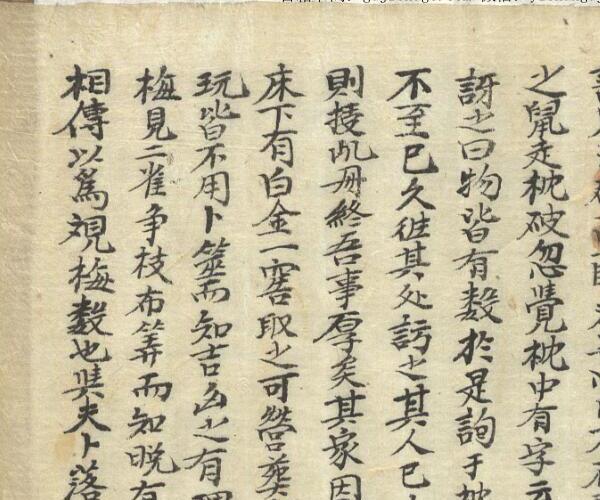 之鼠走枕破忽覺枕中有字
訝之曰物皆有数於是詢于
不至已久徃其处訪之其人已
則授此冊終吾事厚矣其家因
床下有白金一窖取之可營葬
玩皆不用卜筮而知吉凶之有
梅見二雀争枝布筭而知晚有
相傳以爲觀梅数也與夫卜落